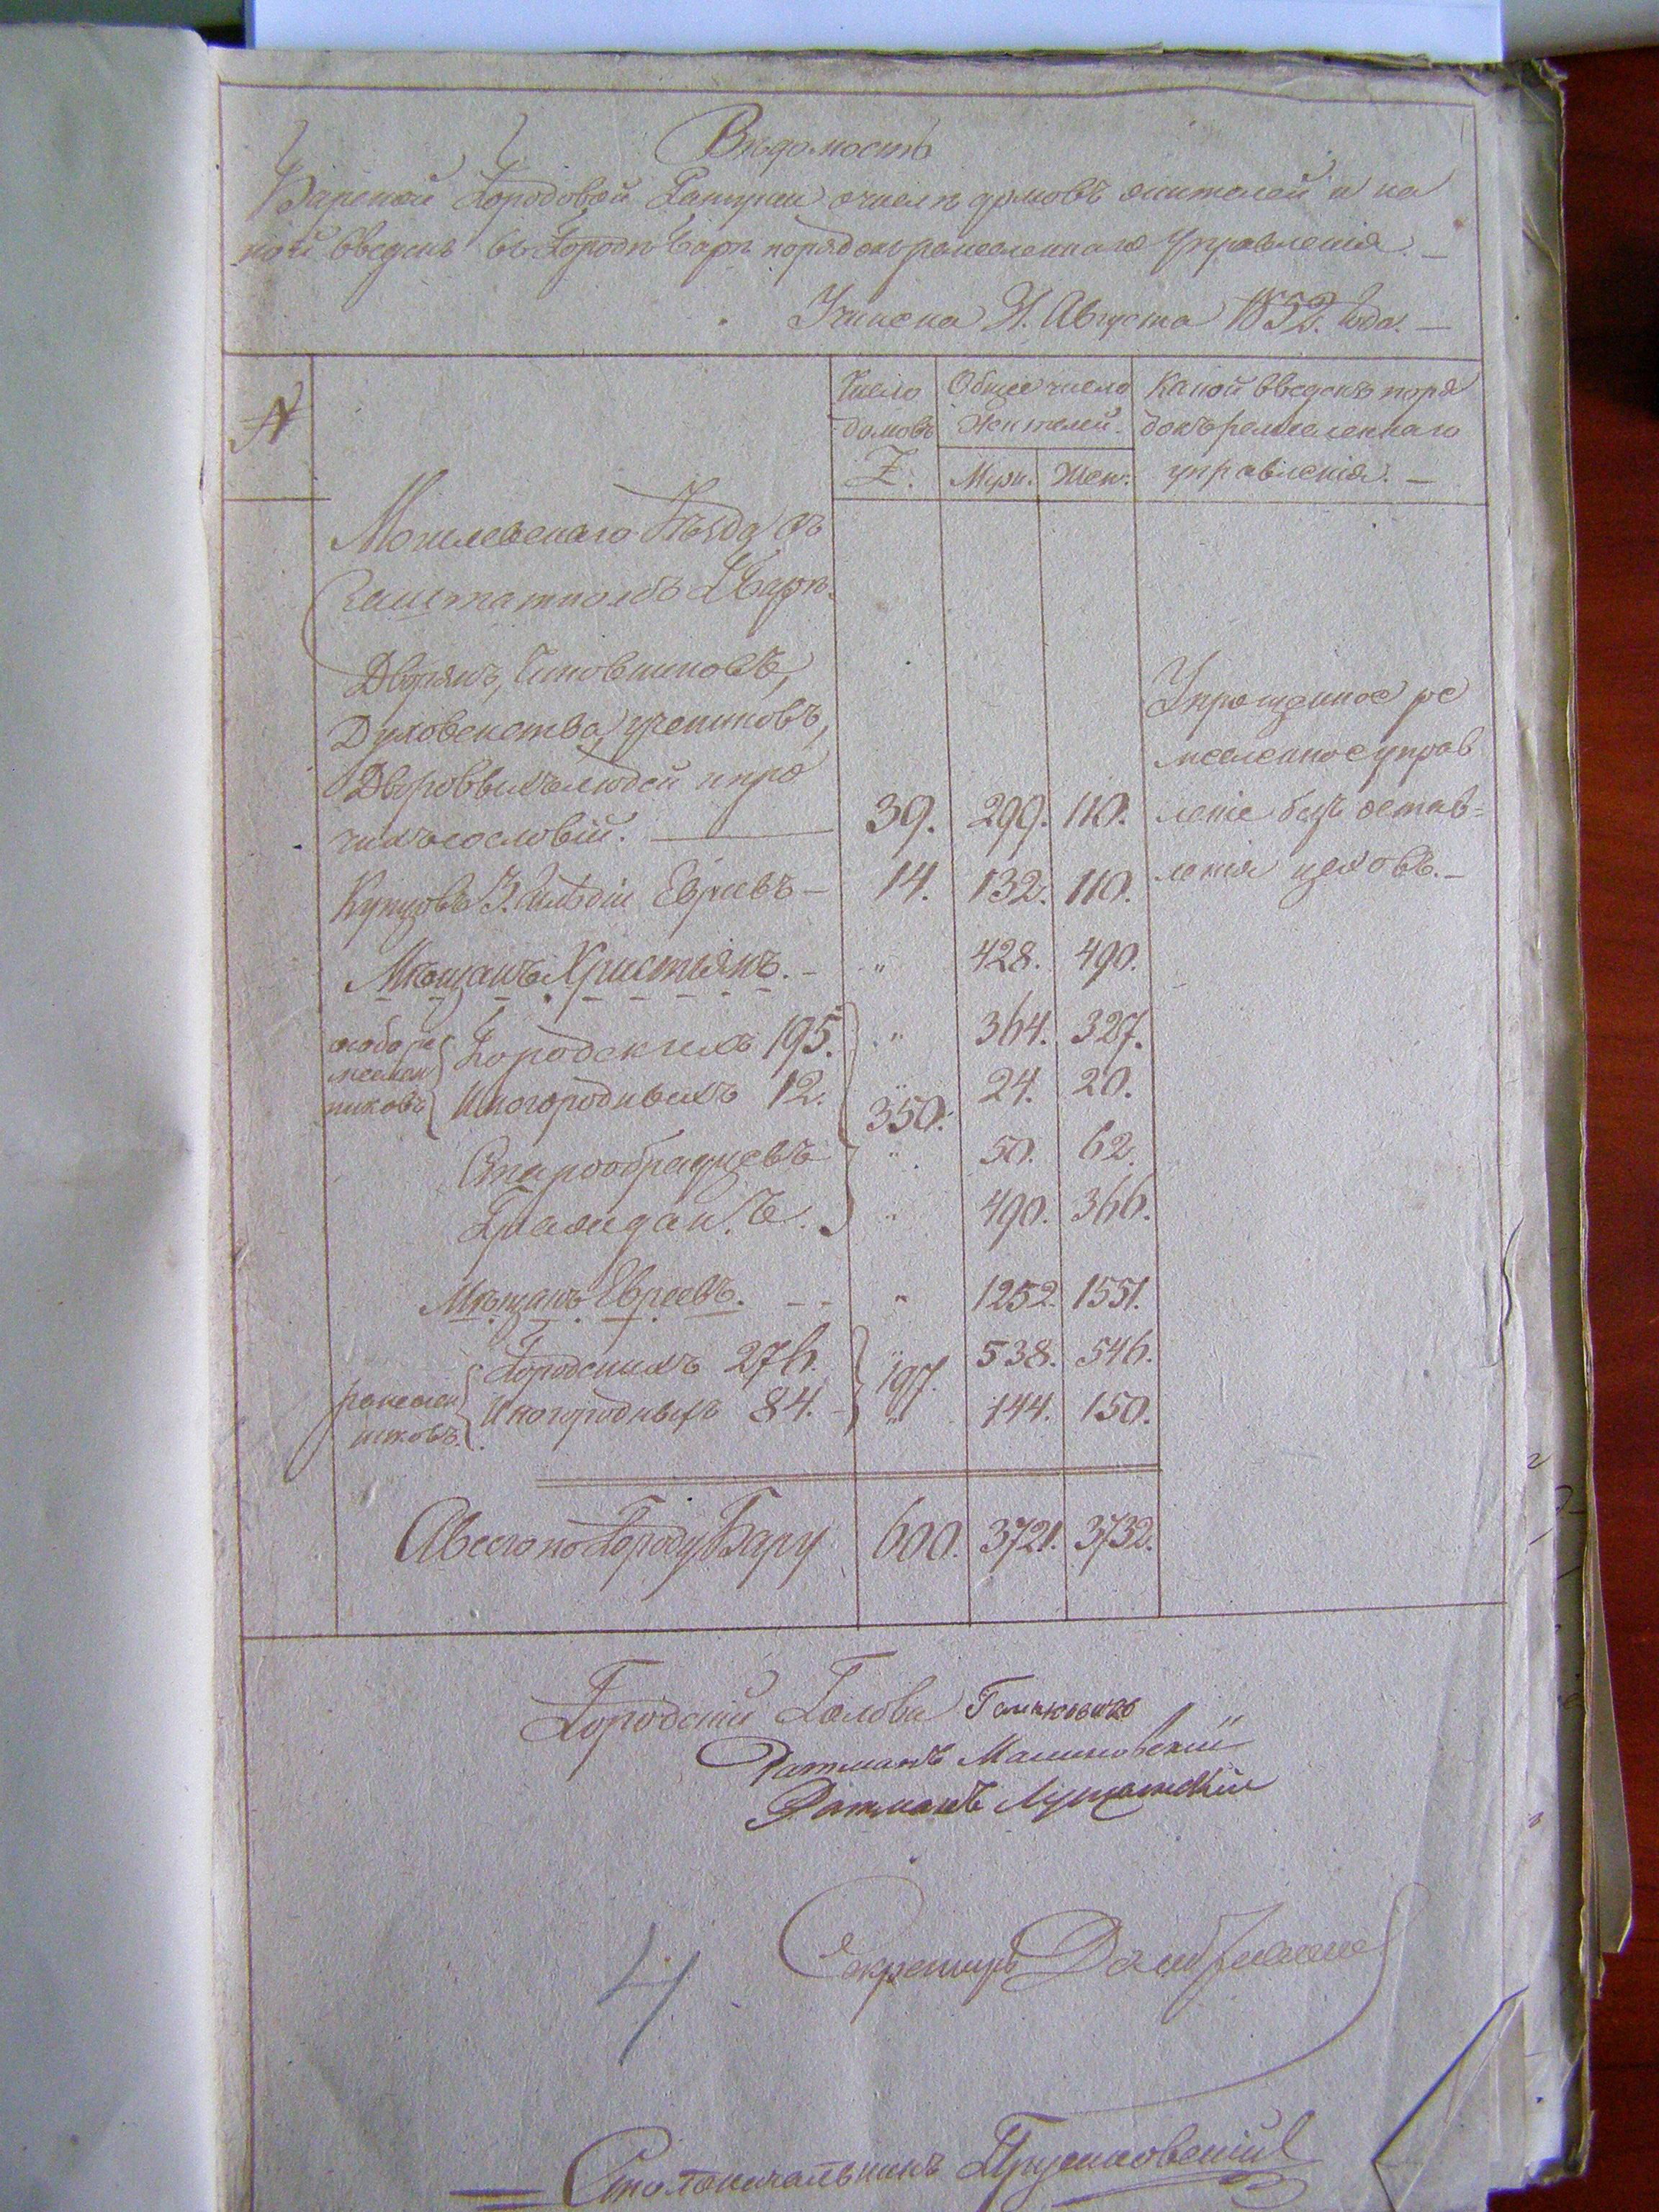 Вѣдомость
Барской Городовой Ратуши о числѣ домовъ жителей и ка
кой введенъ въ Городѣ Барѣ порядокъ ремесленнаго Управленія. —
Учинена Августа 1852. Года. —
№
Число
домовъ
Общее число
Жителей.
Муж. Жен.
Какой введенъ поря
докъ ремесленнаго
управленія. —
Могилевскаго Уѣзда въ
Заштатномъ Г. Барѣ.
Дворянъ, Чиновниковъ,
Духовенства, учениковъ,
Дворовыхъ людей и про
чихъ сословій. — 39. 299. 110.
Упрощенное ре
месленное управ
леніе безъ остав=
ленія цеховъ. —
Купцовъ 3. Гильдіи Евреевъ — 14. 132. 110.
Мѣщанъ Христіянъ. — " 428. 490.
особо ре
меслен
никовъ
Городскихъ 195. " 364. 327.
Иногородныхъ 12. " 24. 20.
350.
Старообрядцевъ " 50. 62.
Гражданъ. " 490. 366.
Мѣщанъ Евреевъ. - - " 1252. 1551.
ремеслен
никовъ.
Городскихъ 276. " 538. 546.
197.
Иногородныхъ 84. " 144. 150.
А всего по Городу Бару 600. 3721. 3732.
Городской Голова
Ратманъ Малиновскій
Ратманъ
Секретарь
4
Столоначальникъ